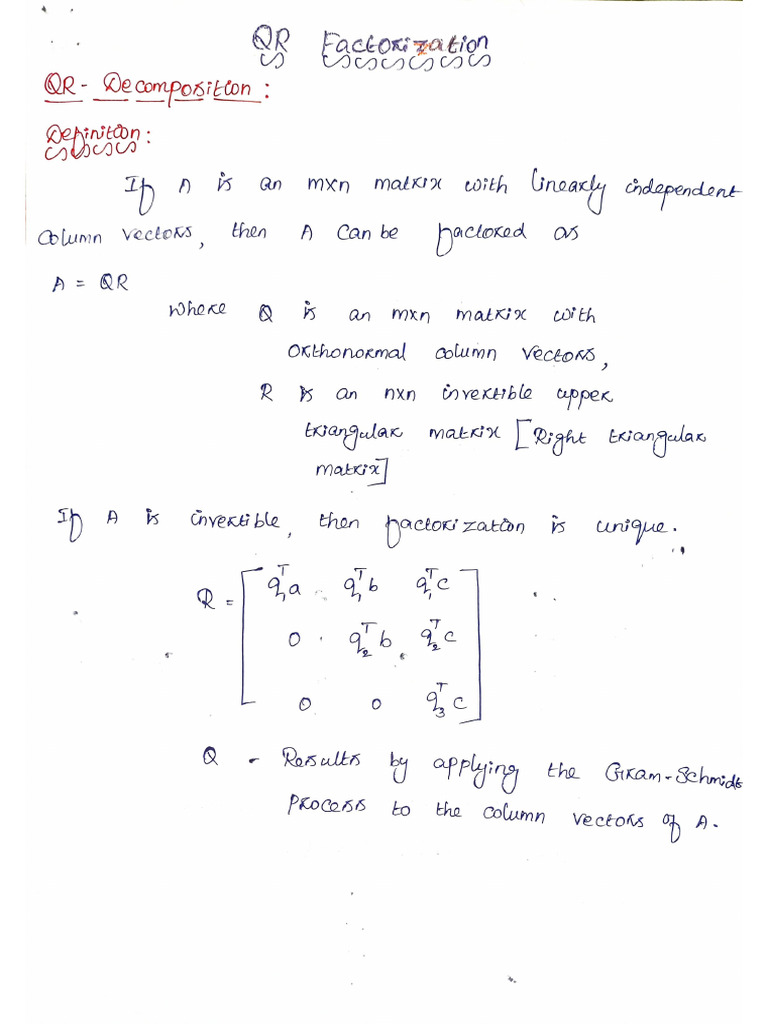 QR Factorization
QR - Decomposition :
Definition :
If A is an mxn matrix with linearly independent
column vectors, then A can be factored as
A = QR
where Q is an mxn matrix with
orthonormal column vectors,
R is an nxn invertible upper
triangular matrix [Right triangular
matrix]
If A is invertible, then factorization is unique.
R = [ q₁ᵀa q₁ᵀb q₁ᵀc
0 q₂ᵀb q₂ᵀc
0 0 q₃ᵀc ]
Q - Results by applying the Gram-Schmidt
process to the column vectors of A.